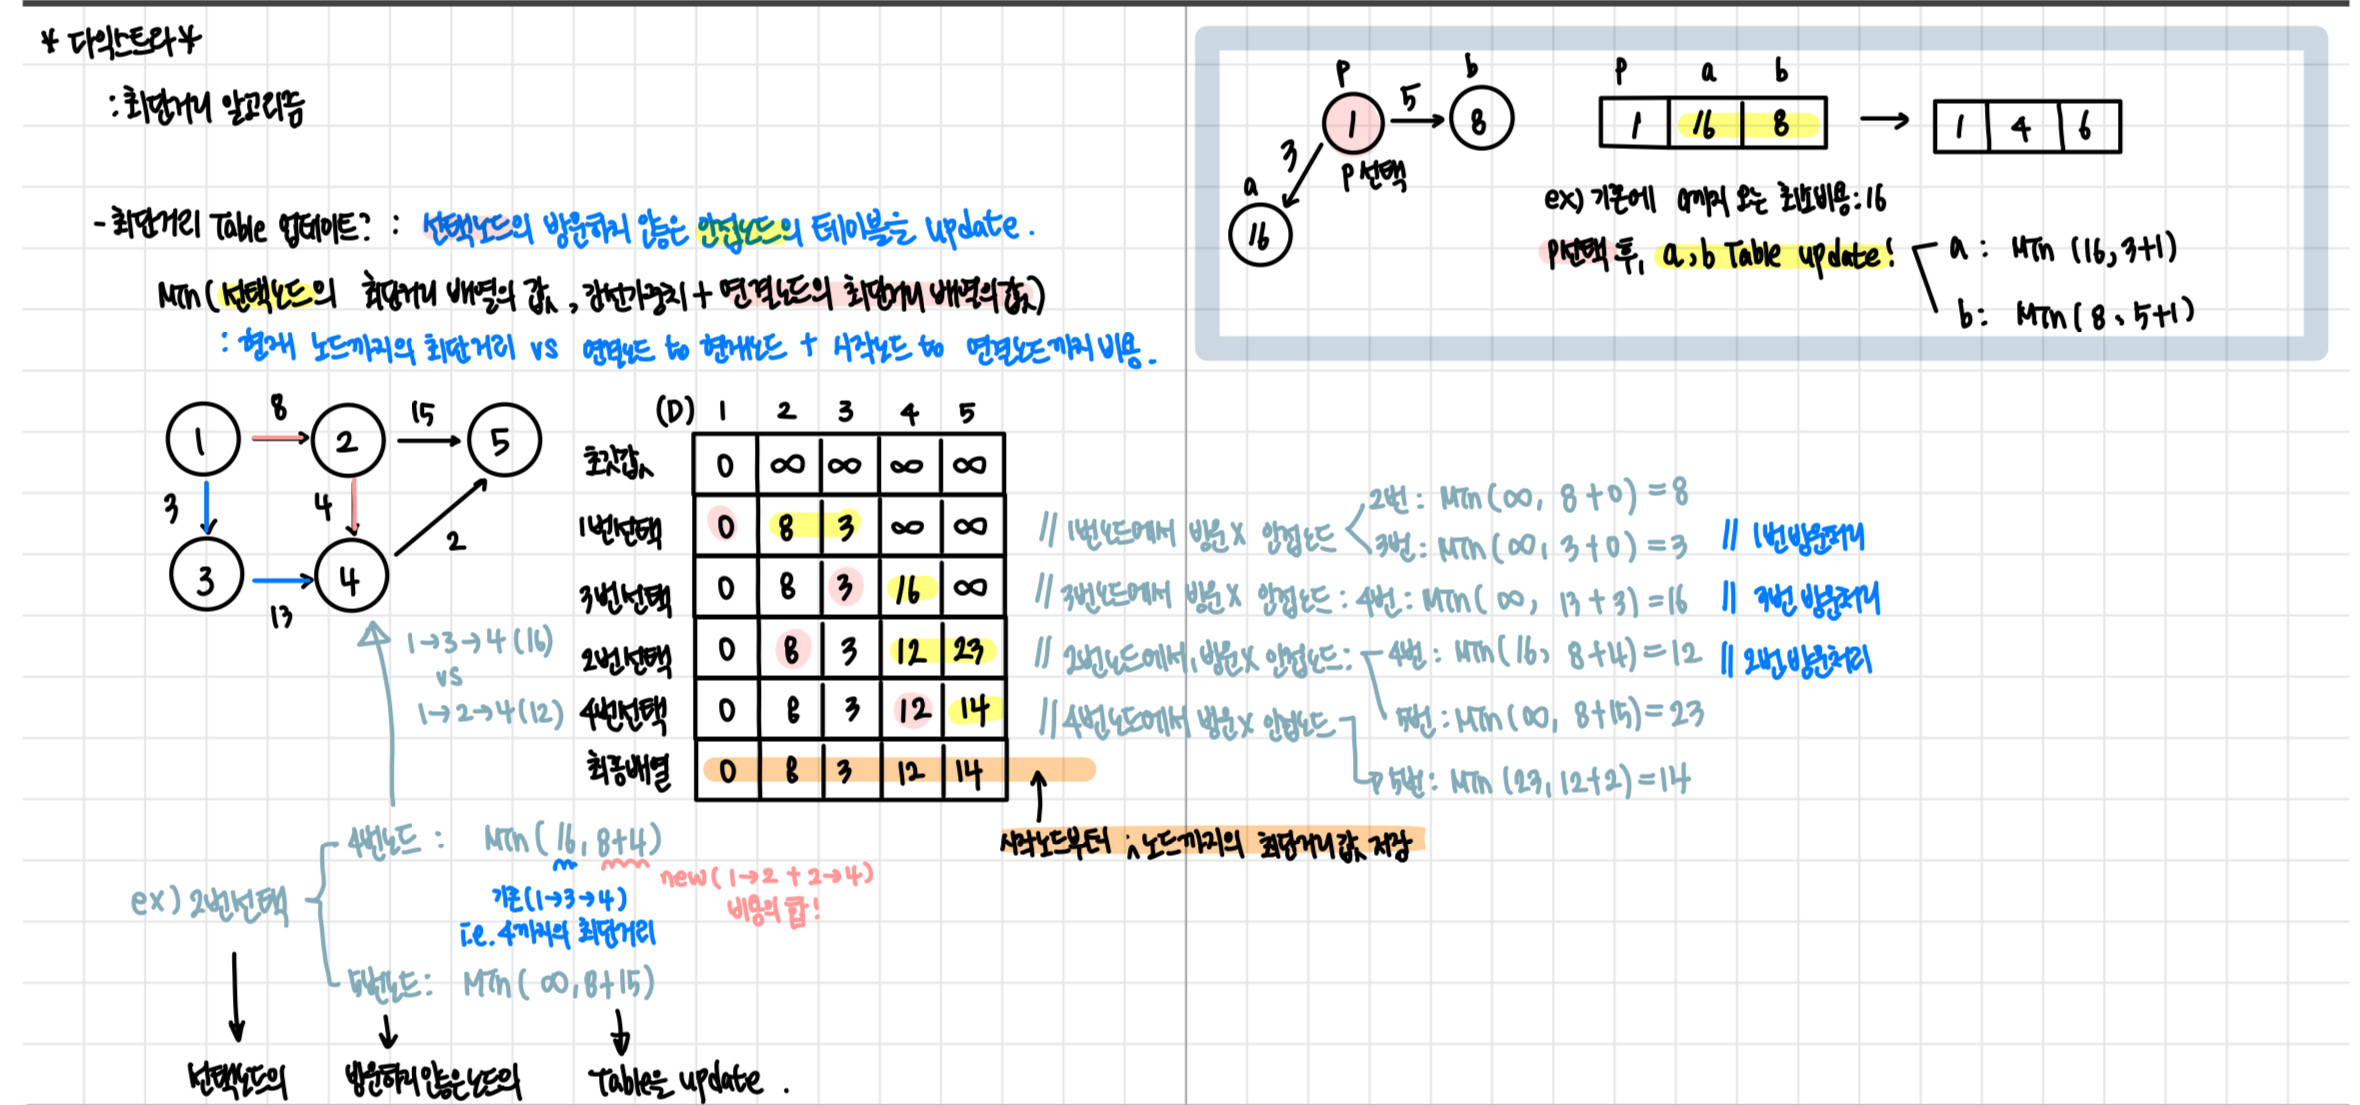 * 다익스트라 *
: 최단거리 알고리즘
- 최단거리 Table 업데이트? : 선택노드의 방문하지 않은 인접노드의 테이블을 update.
Min(선택노드의 최단거리 배열의 값, 간선가중치 + 연결노드의 최단거리 배열의 값)
: 현재 노드까지의 최단거리 vs 연결노드 to 현재노드 + 시작노드 to 연결노드까지 비용.
P b
1 5 8
3
P선택
a
16
P a b
1 16 8 → 1 4 6
ex) 기존에 a까지 오는 최소비용:16
P선택 후, a,b Table update!
a : Min (16, 3+1)
b: Min ( 8, 5+1)
1 8 2 15 5
3 4 2
3 13 4
1→3→4 (16)
vs
1→2→4 (12)
(D) 1 2 3 4 5
초깃값 0 ∞ ∞ ∞ ∞
1번선택 0 8 3 ∞ ∞
3번선택 0 8 3 16 ∞
2번선택 0 8 3 12 23
4번선택 0 8 3 12 14
최종배열 0 8 3 12 14
// 1번노드에서 방문X 인접노드
2번: Min(∞, 8+0) = 8
3번: Min(∞, 3+0) = 3 // 1번방문처리
// 3번노드에서 방문X 인접노드: 4번: Min(∞, 13+3) = 16 // 3번 방문처리
// 2번노드에서, 방문X 인접노드: 4번: Min(16, 8+4) = 12 // 2번방문처리
5번: Min(∞, 8+15) = 23
// 4번노드에서 방문X 인접노드
5번: Min (23, 12+2) = 14
시작노드부터 i노드까지의 최단거리값 저장
ex) 2번선택
4번노드: Min(16, 8+4)
기존(1→3→4)
i.e. 4까지의 최단거리
new(1→2 + 2→4)
비용의 합!
5번노드: Min(∞, 8+15)
선택노드의 방문하지않은노드의 Table을 update.